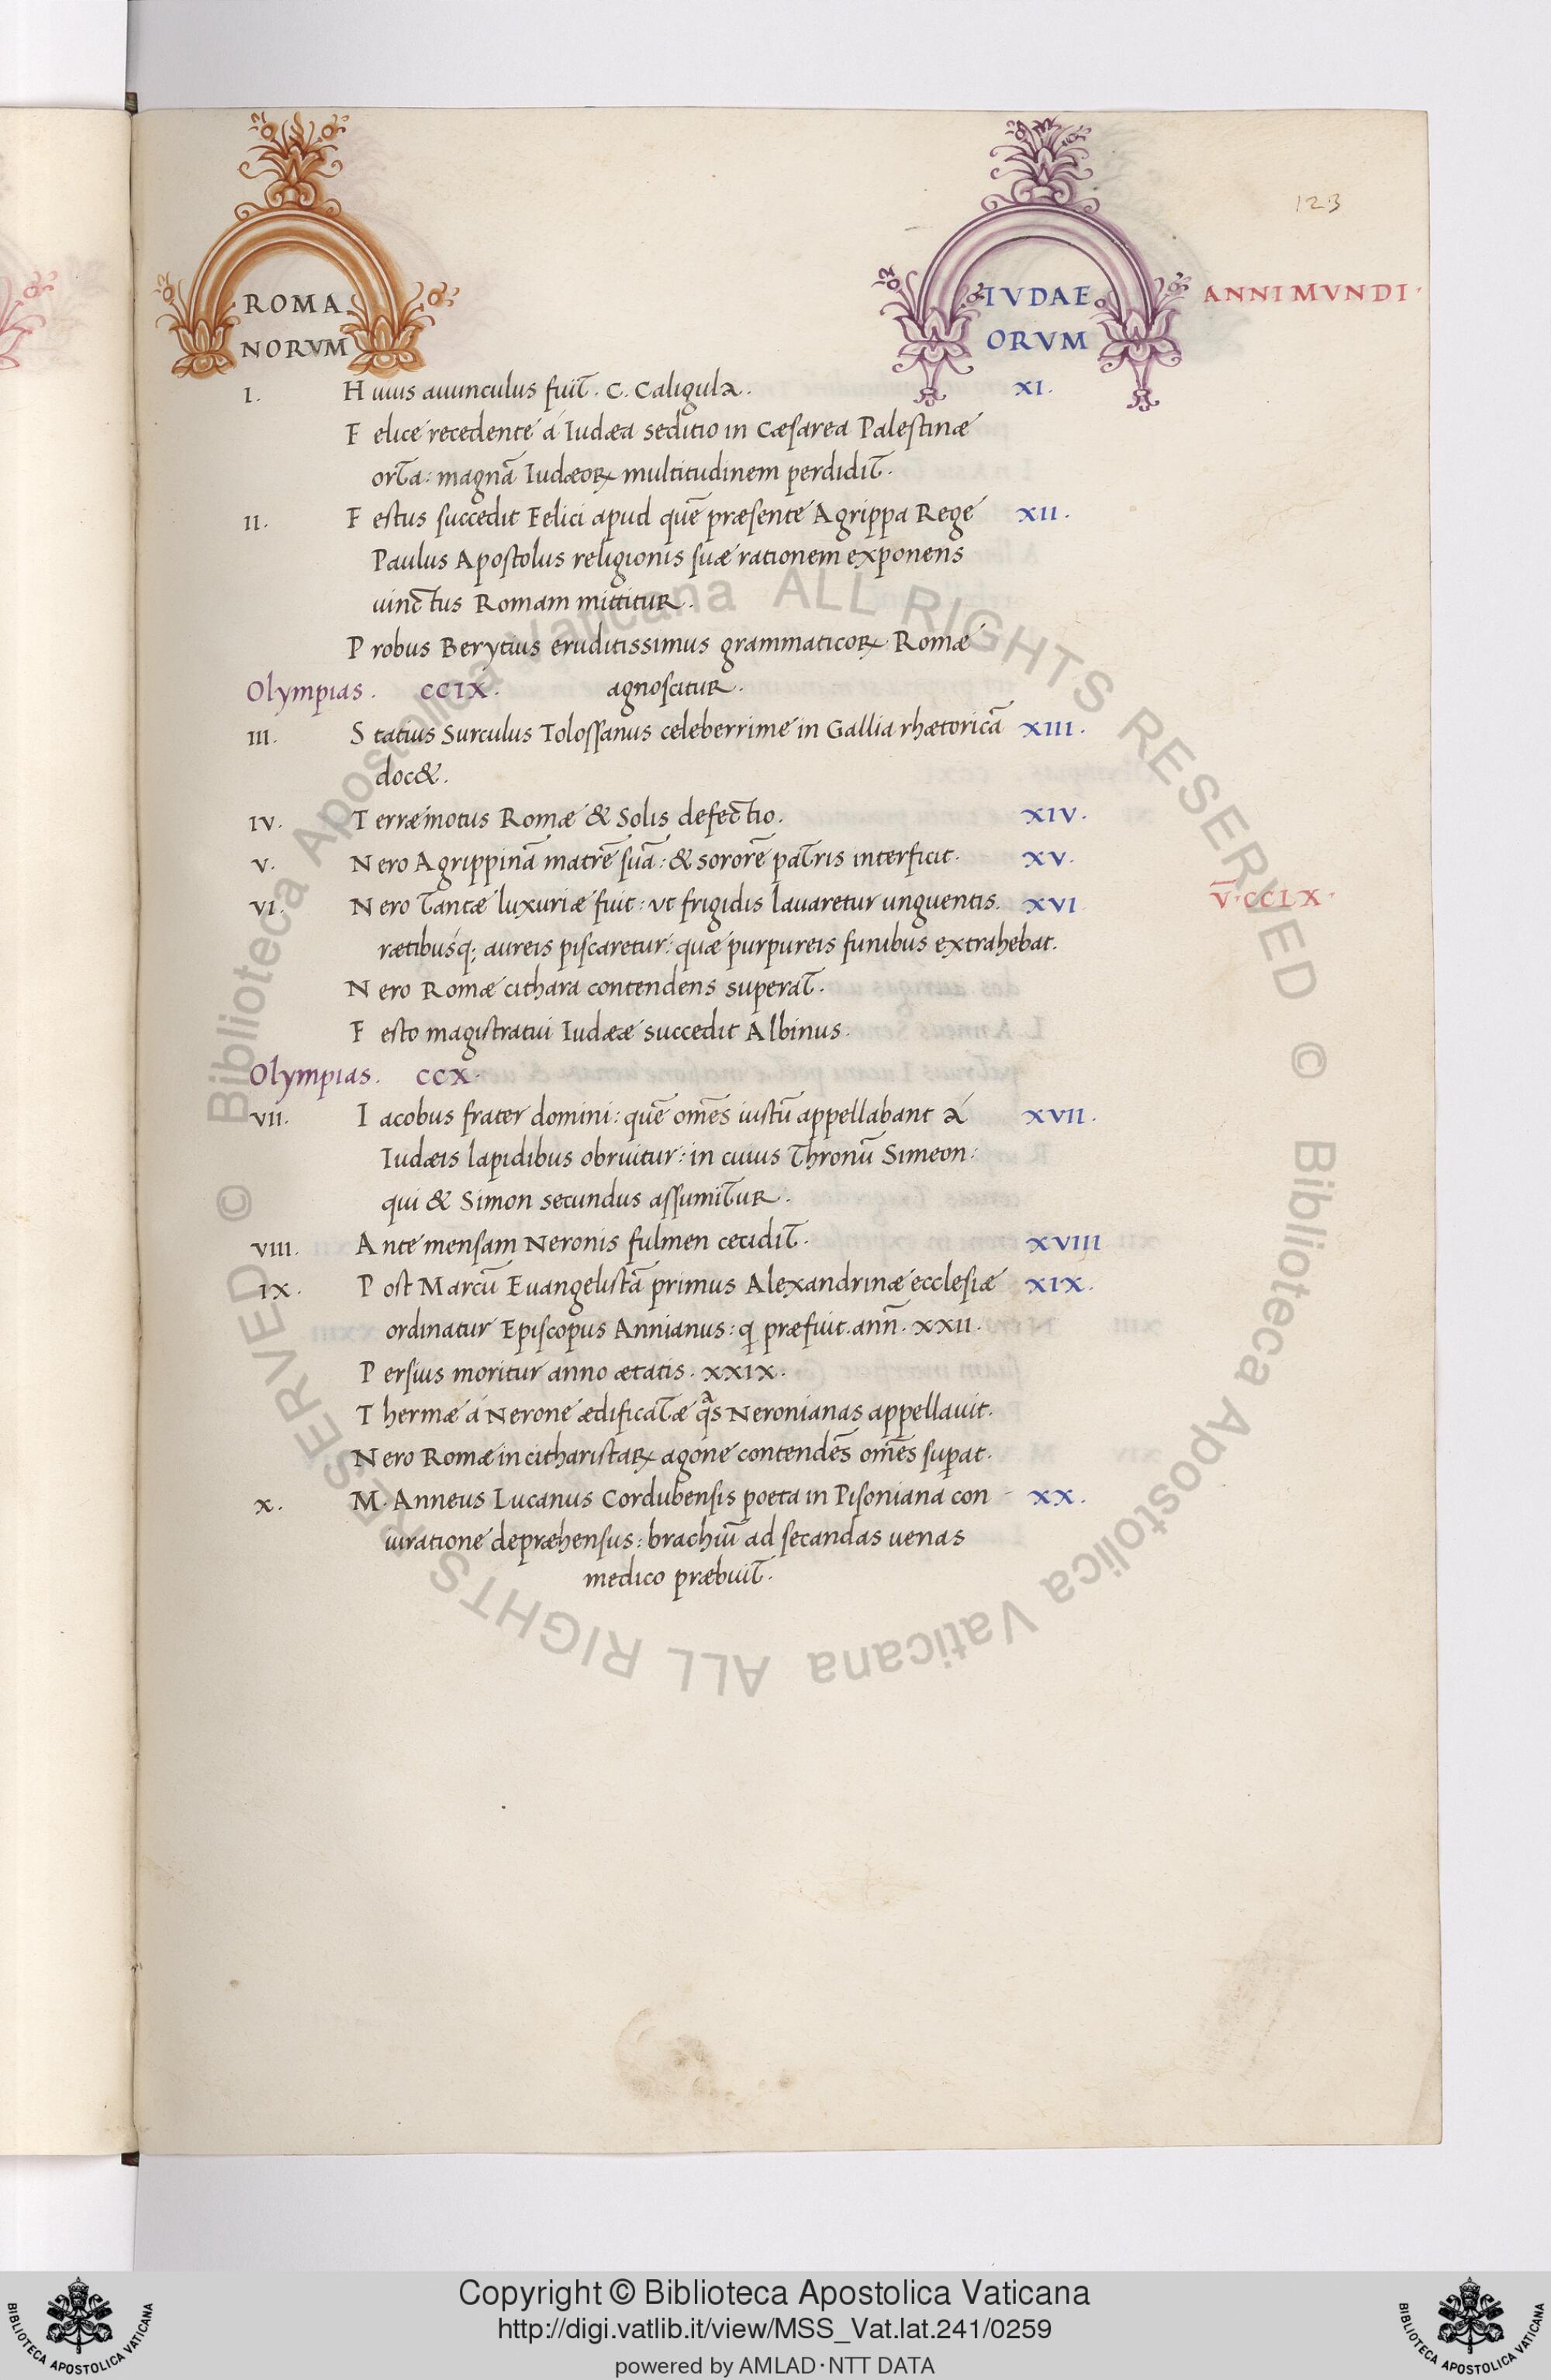 123
ROMA
NORVM
IVDAE
ORVM
ANNI MVNDI·
I. Huius auunculus fuit. C. Caligula. XI.
Felice recedente á Iudæa seditio in Cæsarea Palestinæ
orta: magnā Iudæoꝝ multitudinem perdidit.
II. Festus succedit Felici apud quē præsente Agrippa Rege XII.
Paulus Apostolus religionis suæ rationem exponens
uinctus Romam mittitur.
Probus Berytius eruditissimus grammaticoꝝ Romæ
Olympias. CCIX. agnoscitur.
III. Statius Surculus Tolossanus celeberrime in Gallia rhætoricā XIII.
doc&.
IV. Terræmotus Romæ & Solis defectio. XIV.
V. Nero Agrippinā matrē suā: & sororē patris interficit. XV.
VI. Nero tantæ luxuriæ fuit: ut frigidis lavaretur unguentis. XVI V̄·CCLX·
rætibusq; aureis piscaretur: quæ purpureis funibus extrahebat.
Nero Romæ cithara contendens superat.
Festo magistratui Iudææ succedit Albinus.
Olympias. CCX.
VII. Iacobus frater domini: quē omēs iustū appellabant á XVII.
Iudæis lapidibus obruitur: in cuius thronū Simeon:
qui & Simon secundus assumitur.
VIII. Ante mensam Neronis fulmen cecidit. XVIII
IX. Post Marcū Euangelistā primus Alexandrinæ ecclesiæ XIX.
ordinatur Episcopus Annianus: q præfuit. ann̄. XXII.
Persius moritur anno ætatis. XXIX.
Thermæ á Nerone ædificatæ qᵃs Neronianas appellavit.
Nero Romæ in citharistaꝝ agone contendēs omēs supat.
X. M. Anneus Lucanus Cordubensis poeta in Pisoniana con- XX.
iuratione depræhensus: brachiū ad secandas uenas
medico præbuit.
© Biblioteca Apostolica Vaticana ALL RIGHTS RESERVED © Biblioteca Apostolica Vaticana ALL RIGHTS RESERVED
BIBLIOTECA APOSTOLICA VATICANA
Copyright © Biblioteca Apostolica Vaticana
http://digi.vatlib.it/view/MSS_Vat.lat.241/0259
powered by AMLAD·NTT DATA
BIBLIOTECA APOSTOLICA VATICANA